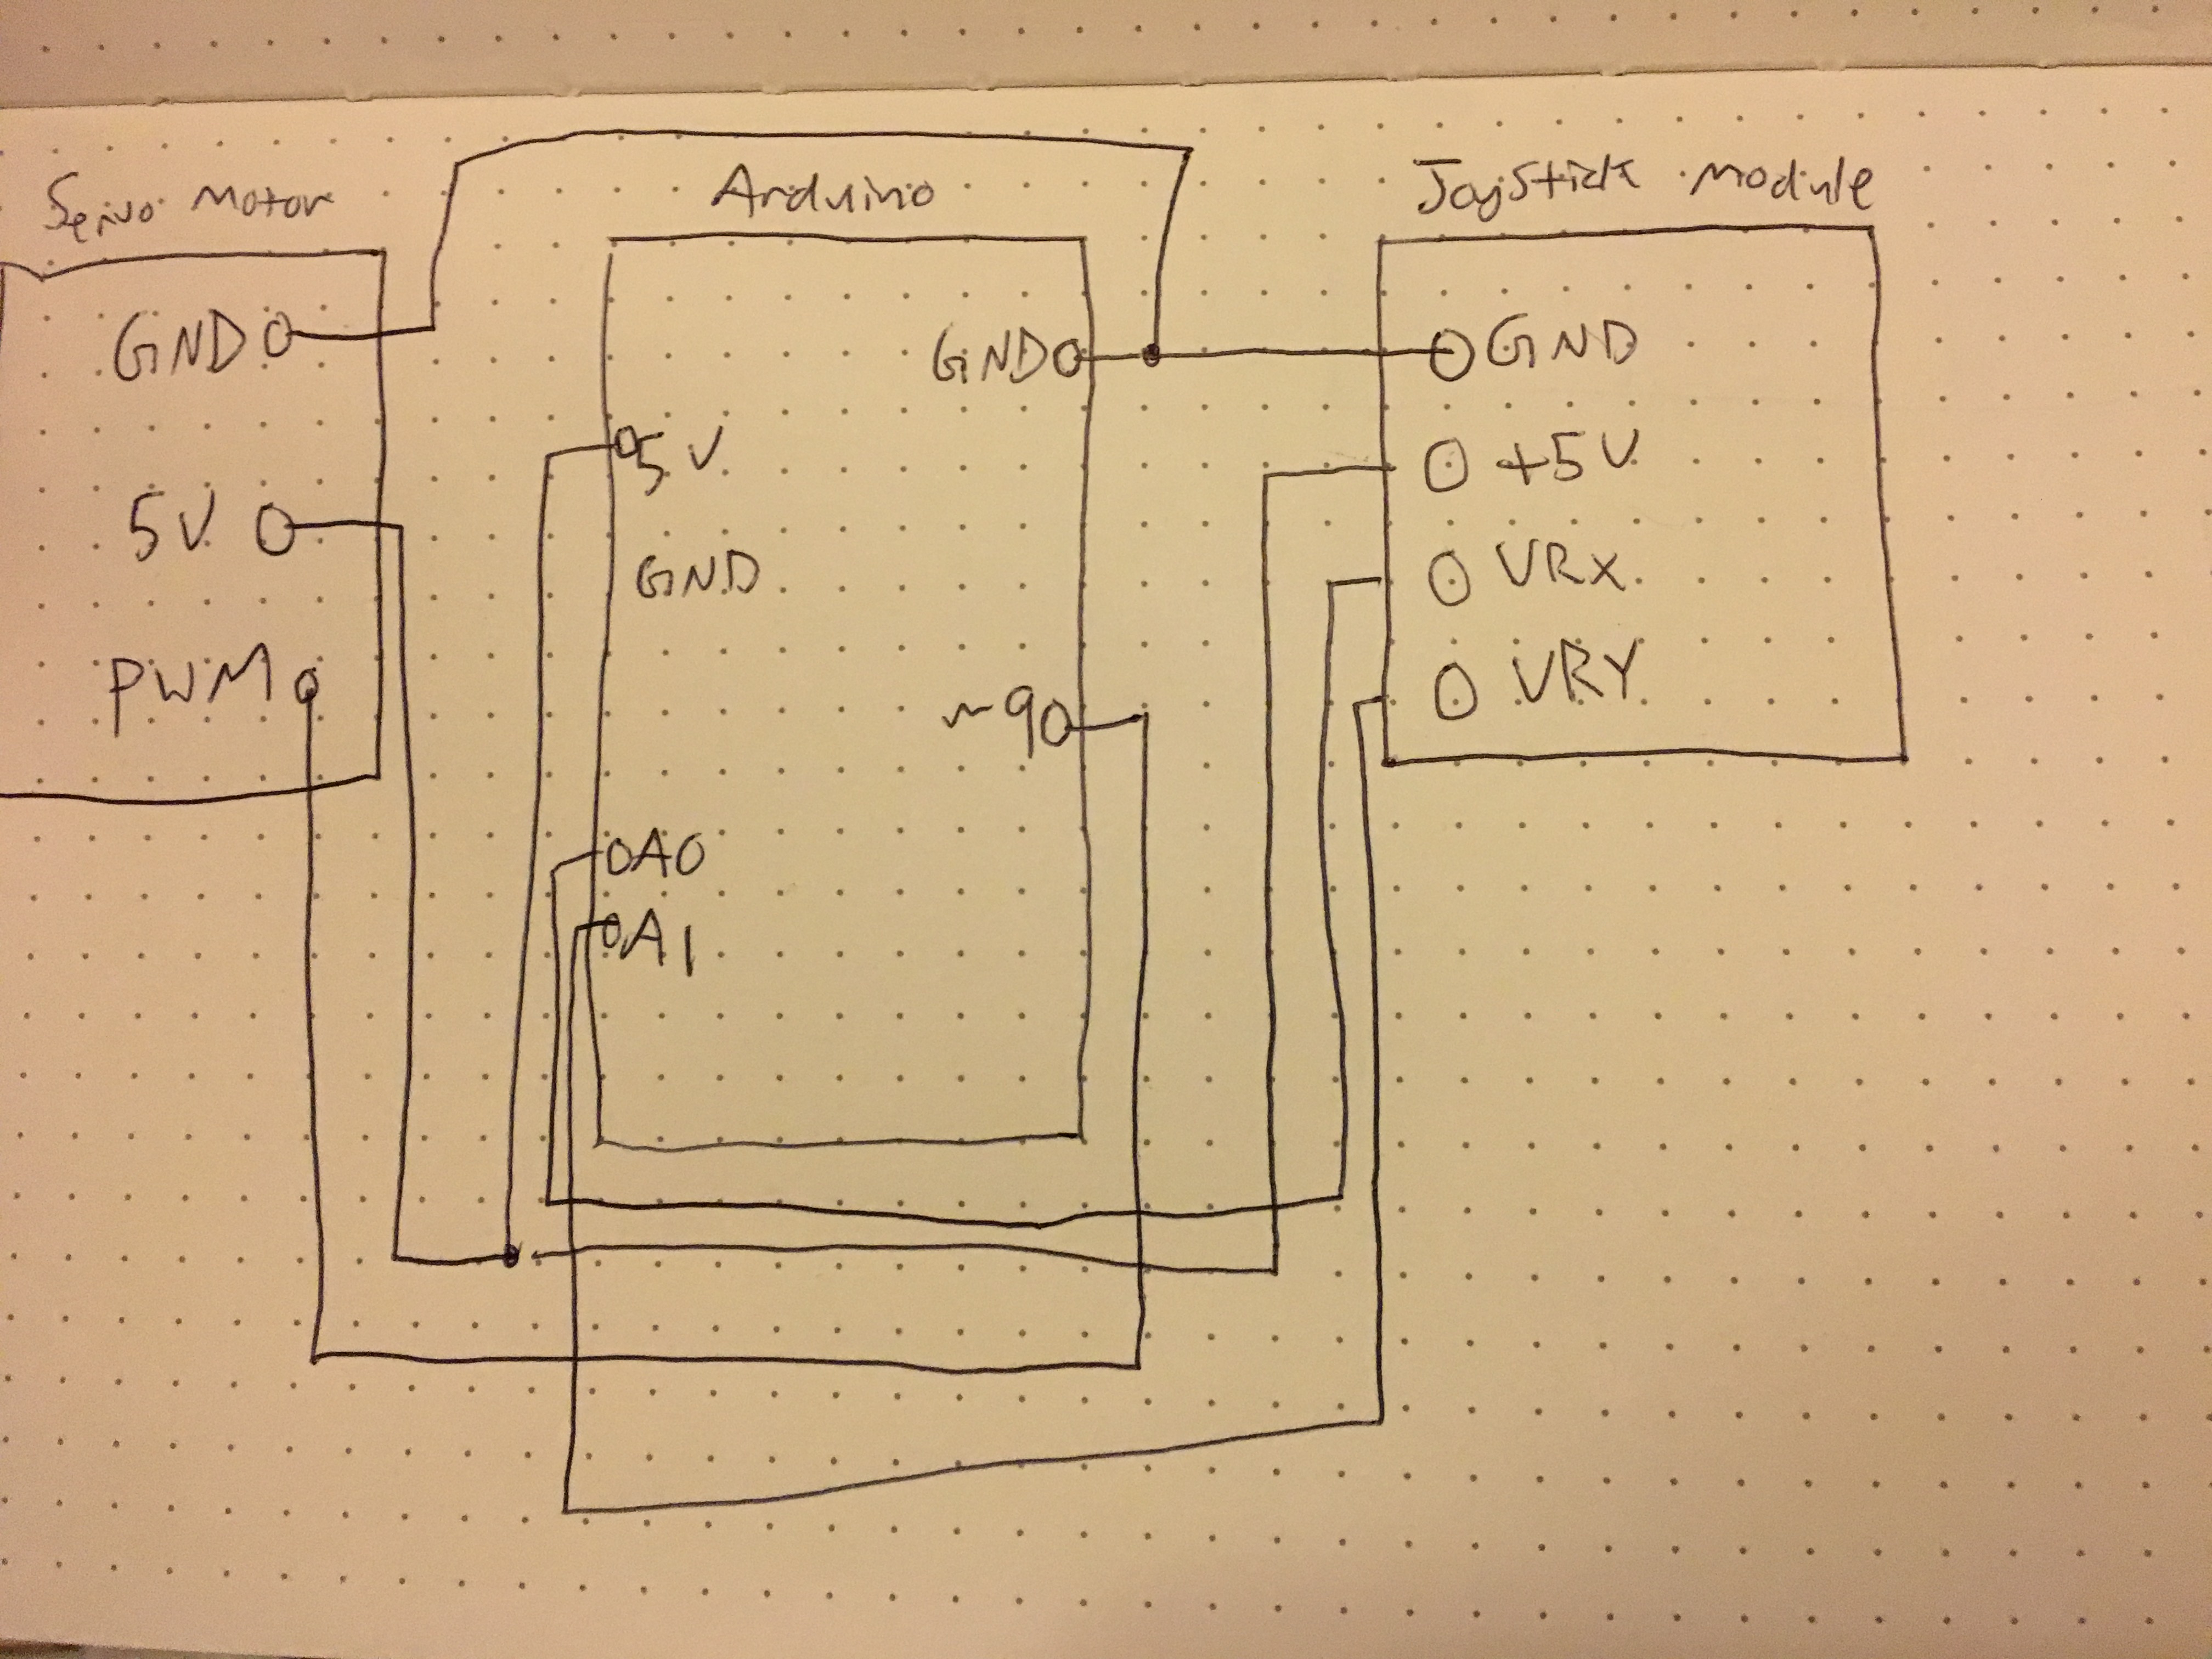 Servo Motor
GND
5V
PWM
Arduino
GND
5V
GND
~9
A0
A1
Joystick Module
GND
+5V
VRx
VRY